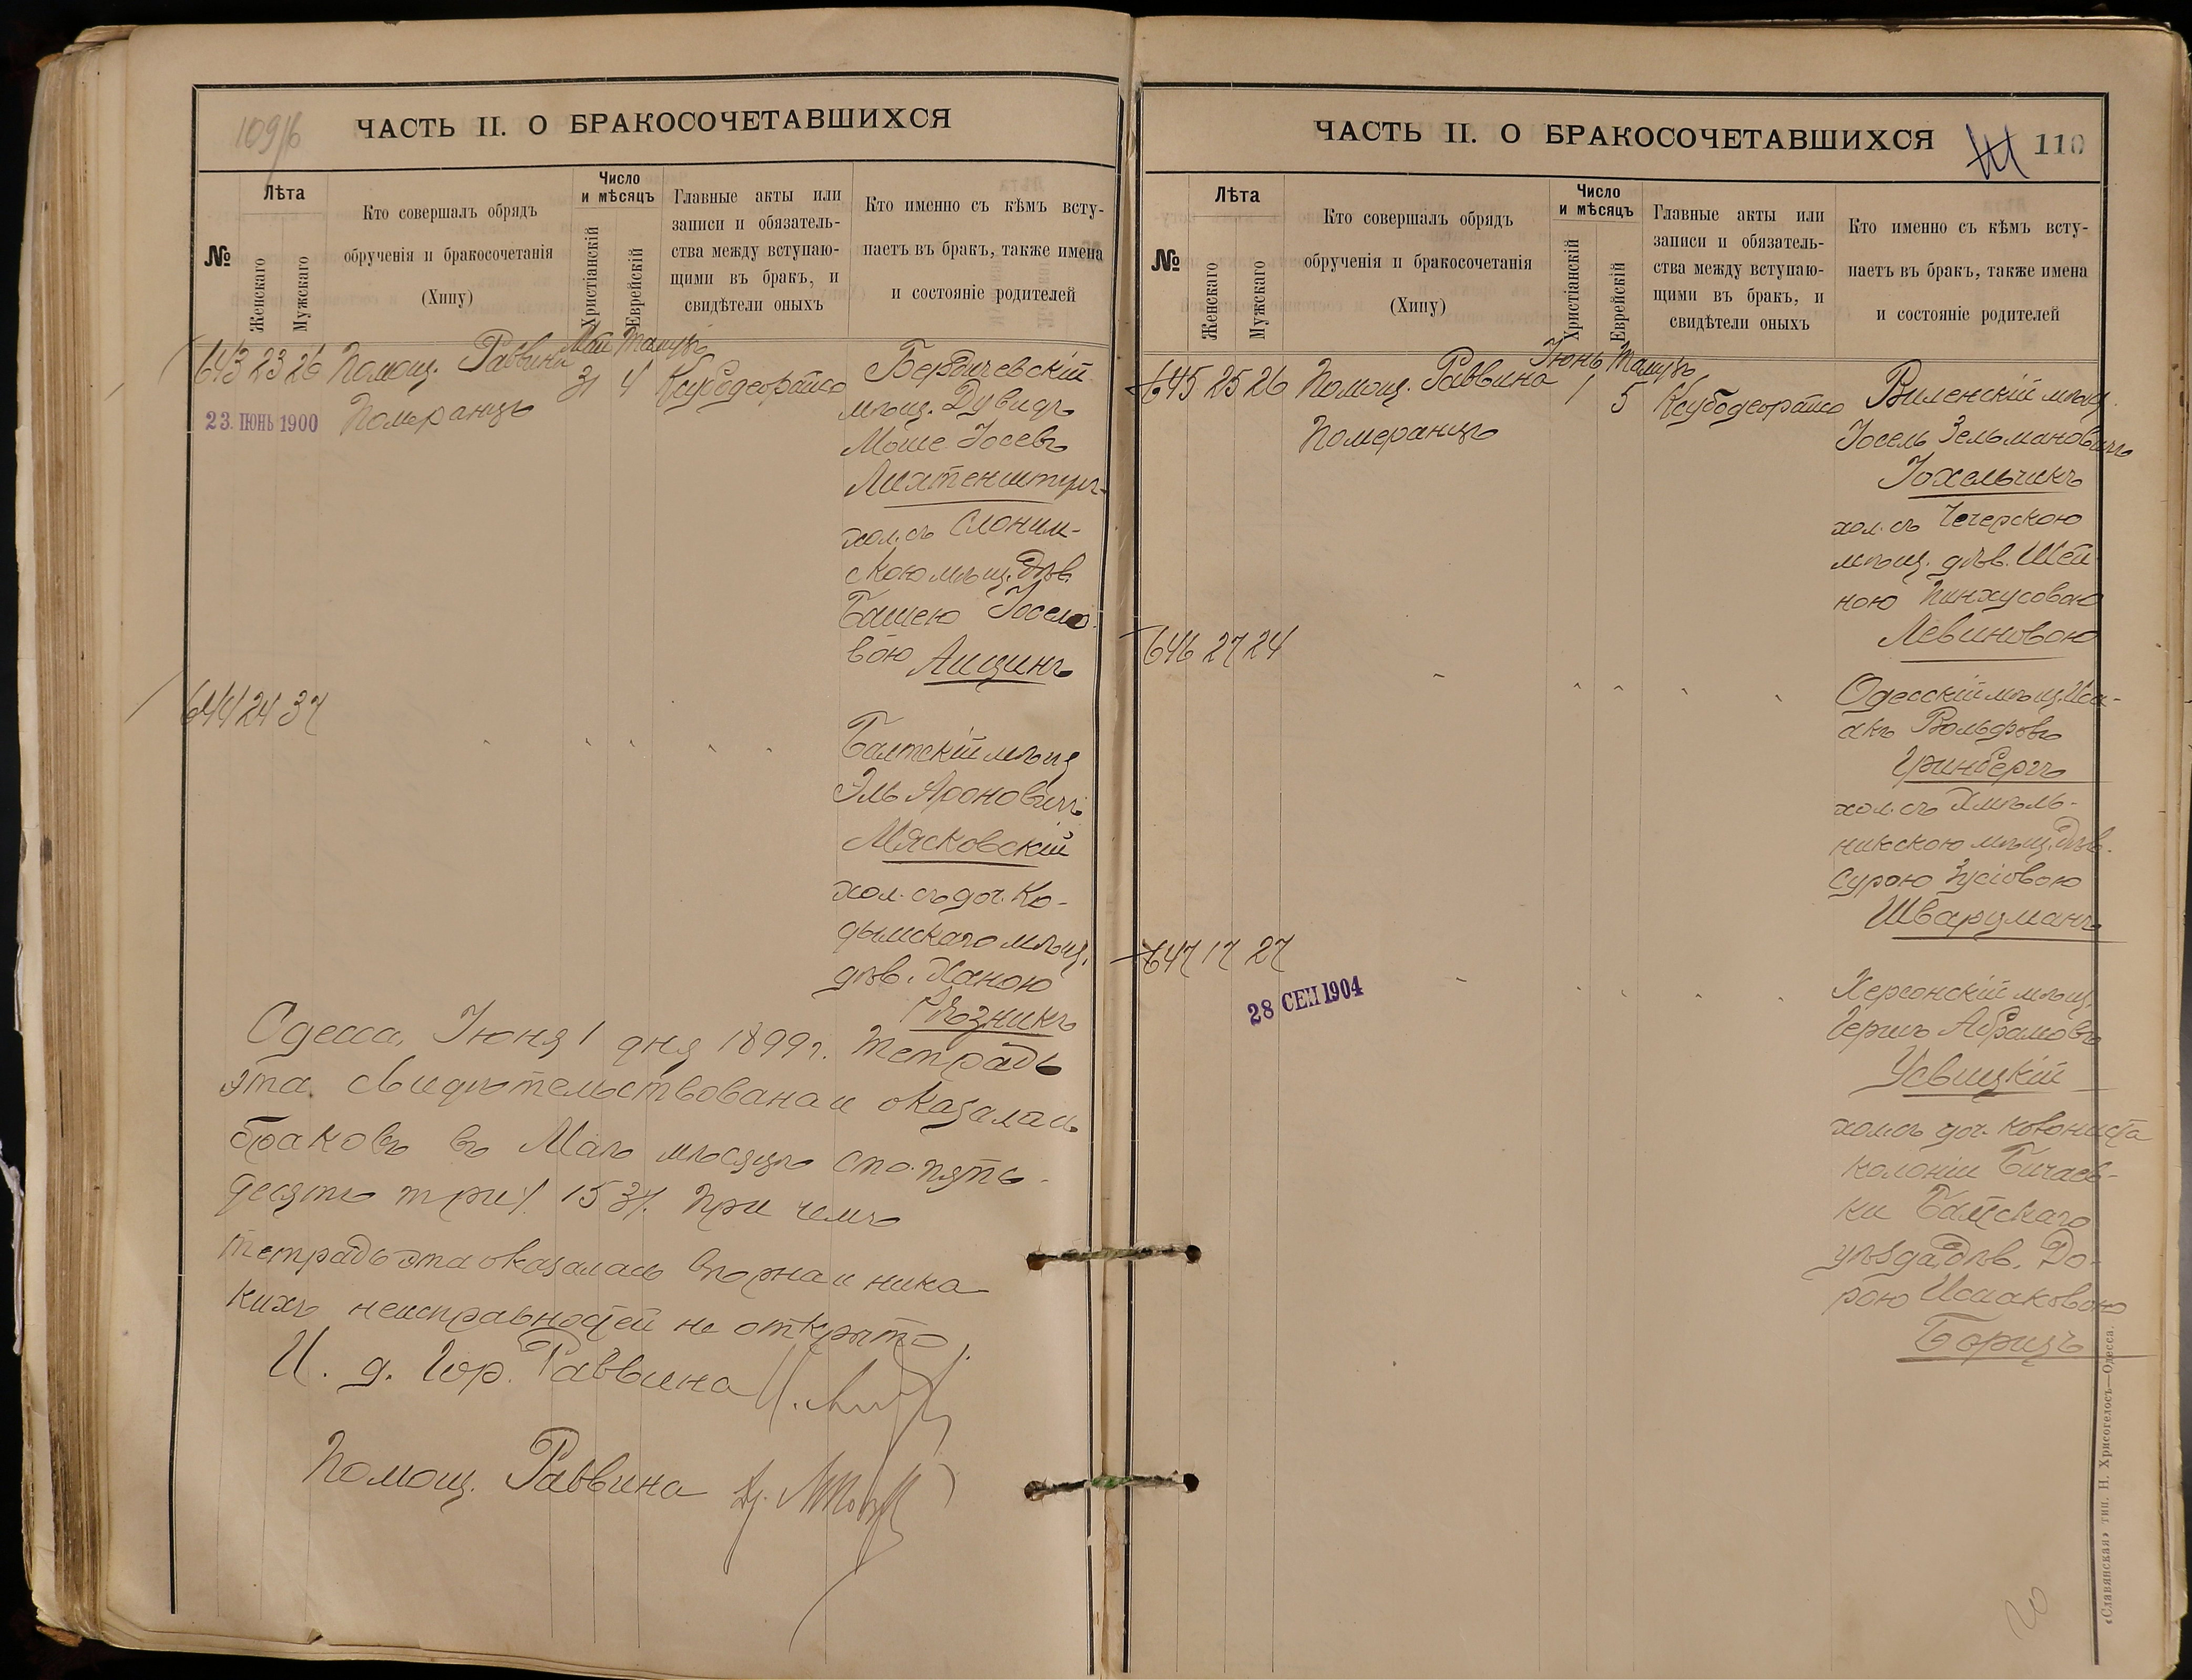 109/б
ЧАСТЬ II. О БРАКОСОЧЕТАВШИХСЯ
№
Лѣта
Женскаго
Мужскаго
Кто совершалъ обрядъ
обрученія и бракосочетанія
(Хипу)
Число
и мѣсяцъ
Христіанскій
Еврейскій
Главные акты или
записи и обязатель-
ства между вступаю-
щими въ бракъ, и
свидѣтели оныхъ
Кто именно съ кѣмъ всту-
паетъ въ бракъ, также имена
и состояніе родителей
Май Тамузъ
643 23 26 Помощ. Раввина 31 4
Померанцъ
23. ІЮНЬ 1900
Бердичевскій
мѣщ. Дувидъ
Моше Іосевъ
хол. съ Слоним-
скою мѣщ. дѣв.
Башею Іосело-
вою Лицинъ
644 24 37
Балтскій мѣщ
Эль Ароновичъ
Мясковскій
хол. съ доч. Ко-
дымскаго мѣщ.
дѣв. Ханою
Рѣзникъ
Одесса, Іюня 1 дня 1899 г. Тетрадь
эта свидѣтельствована и оказалась
браковъ въ Маѣ мѣсяцѣ сто пять-
десять три /153/. При чемъ
тетрадь эта оказалась вѣрна и ника-
кихъ неисправностей не открыто.
И. д. Гор. Раввина
Помощ. Раввина
ЧАСТЬ II. О БРАКОСОЧЕТАВШИХСЯ
110
№
Лѣта
Женскаго
Мужскаго
Кто совершалъ обрядъ
обрученія и бракосочетанія
(Хипу)
Число
и мѣсяцъ
Христіанскій
Еврейскій
Главные акты или
записи и обязатель-
ства между вступаю-
щими въ бракъ, и
свидѣтели оныхъ
Кто именно съ кѣмъ всту-
паетъ въ бракъ, также имена
и состояніе родителей
Іюнь Тамузъ
645 25 26 Помощ. Раввина 1 5
Померанцъ
Виленскій мѣщ.
Іосель Зельмановичъ
Іохельчикъ
хол. съ Чечерскою
мѣщ. дѣв. Шей-
ною Пинхусовою
Левиновою
646 27 24
Одесскій мѣщ. Иса-
акъ Вольфовъ
Гринбергъ
хол. съ Хмѣль-
никскою мѣщ. дѣв.
Сурою Зусіовою
Шварцманъ
647 17 27
28 СЕН 1904
Херсонскій мѣщ.
Гершъ Абрамовъ
Усвицкій
хол. съ доч. колониста
колоніи Бичаев-
ки Балтскаго
уѣзда, дѣв. До-
рою Исааковою
Борицъ
«Славянская» тип. Н. Хрисогелосъ—Одесса.